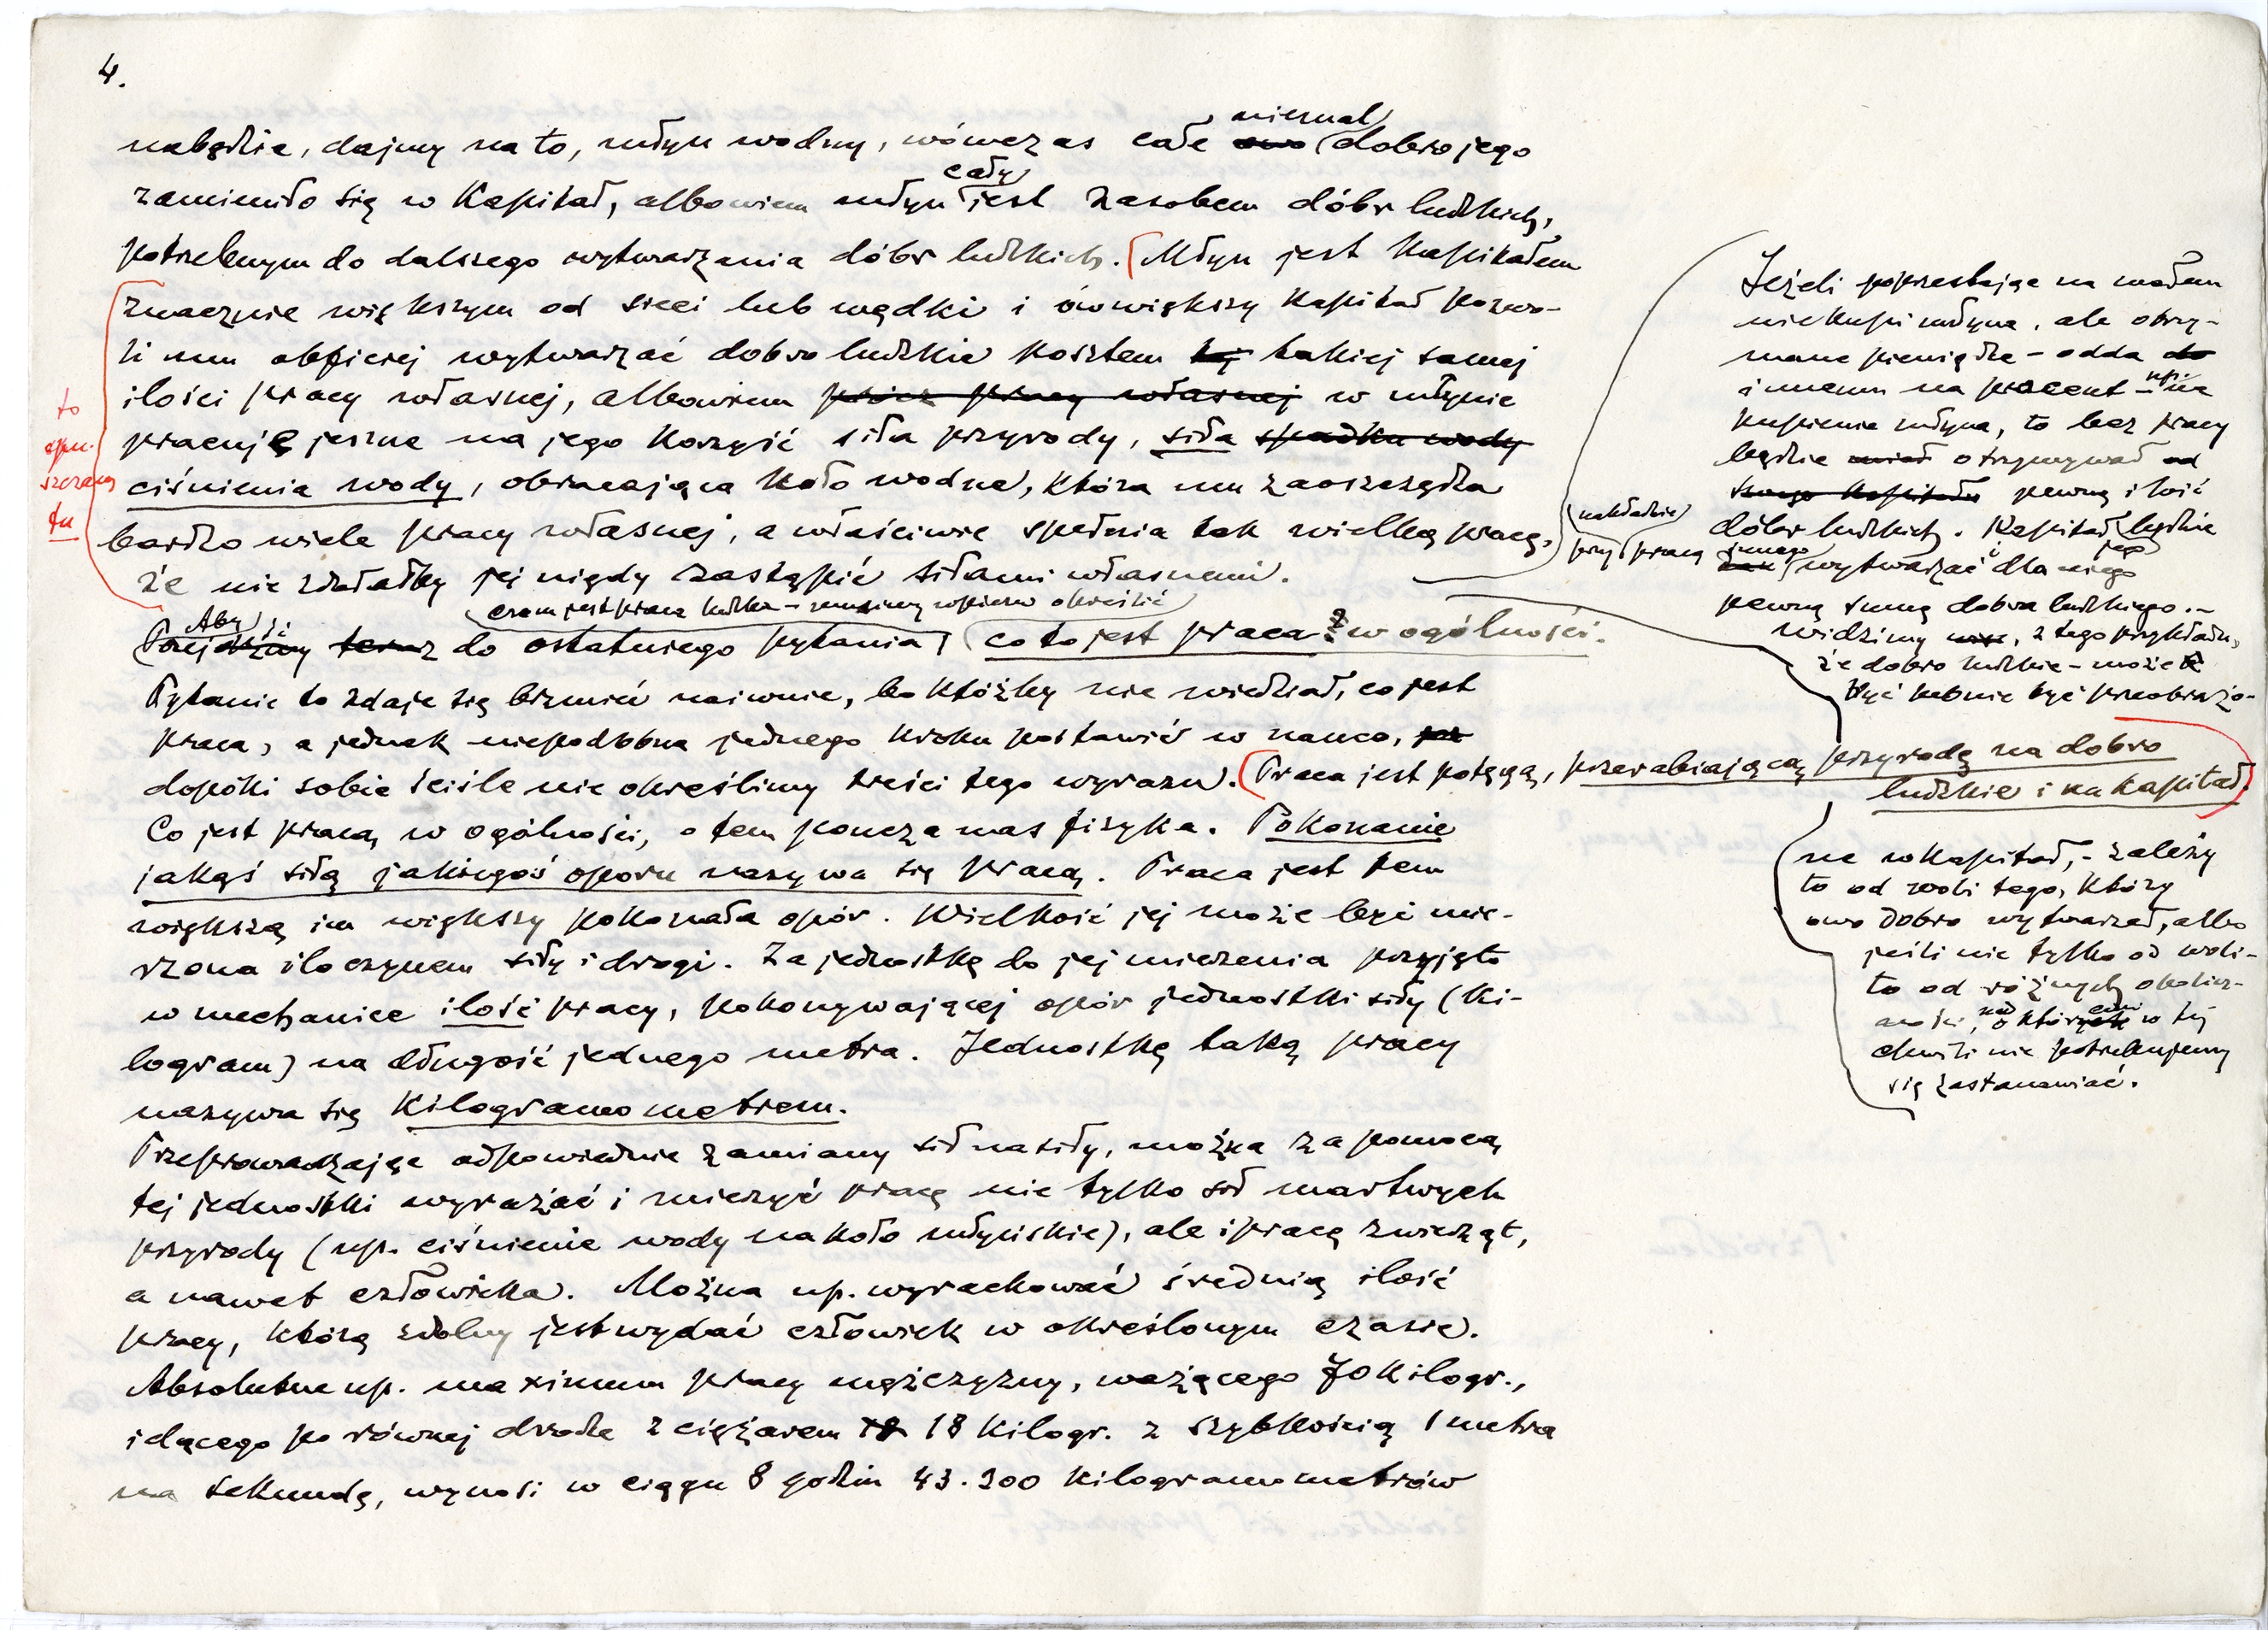 4.
niemal
nabędzie, dajmy na to, młyn wodny, wówczas całe owo dobro jego
cały
zamieniło się w kapitał, albowiem młyn jest zasobem dóbr ludzkich,
potrzebnym do dalszego wytwarzania dóbr ludzkich. Młyn jest kapitałem
znacznie większym od sieci lub wędki i ów większy kapitał pozwo-
li mu obficiej wytwarzać dobro ludzkie kosztem tej takiej samej
ilości pracy własnej, albowiem prócz pracy własnej w młynie
pracuje jeszcze na jego korzyść siła przyrody, siła spadku wody
ciśnienia wody, obracająca koło wodne, która mu zaoszczędza
bardzo wiele pracy własnej, a właściwie spełnia tak wielką pracę,
że nie zdołałby jej nigdy zastąpić siłami własnemi.
to
opu-
szczam
tu
czem jest praca ludzka – musimy wpierw określić
Aby
Przejdźmy teraz do ostatniego pytania, co to jest praca? w ogólności.
Pytanie to zdaje się brzmieć naiwnie, bo któżby nie wiedział, co jest
praca, a jednak niepodobna jednego kroku postawić w nauce,
dopóki sobie ściśle nie określimy treści tego wyrazu. (Praca jest potęgą, przerabiającą przyrodę na dobro
ludzkie i na kapitał)
Co jest pracą w ogólności, o tem poucza nas fizyka. Pokonanie
jakąś siłą jakiegoś oporu nazywa się pracą. Praca jest tem
większą im większy pokonała opór. Wielkość jej może być mie-
rzona iloczynem siły i drogi. Za jednostkę do jej mierzenia przyjęto
w mechanice ilość pracy, pokonywającej opór jednostki siły (ki-
logram) na długość jednego metra. Jednostkę taką pracy
nazywa się Kilogramometrem.
Przeprowadzając odpowiednie zamiany sił na siły, można za pomocą
tej jednostki wyrażać i mierzyć pracę nie tylko sił martwych
przyrody (np. ciśnienie wody na koło młyńskie), ale i pracę zwierząt,
a nawet człowieka. Można np. wyrachować średnią ilość
pracy, którą zdolny jest wydać człowiek w określonym czasie.
Absolutne np. maximum pracy mężczyzny, ważącego 70 kilogr.,
idącego po równej drodze z ciężarem 18 kilogr. z szybkością 1 metra
na sekundę, wynosi w ciągu 8 godzin 43.200 kilogramometrów
Jeżeli poprzestając na małem
nie kupi młyna, ale otrzy-
mane pieniądze – odda do
innemu na procent – np. na
kupienie młyna, to bez pracy
będzie miał otrzymywał od
swego kapitału pewną ilość
dóbr ludzkich. Kapitał będzie
nakładzie
przy pracy innego wytwarzać dla niego
jego
pewną sumę dobra ludzkiego. –
widzimy więc, z tego przykładu,
że dobro ludzkie – może
być lub nie być przeobrażo-
ne w kapitał, – zależy
to od woli tego, który
owo dobro wytwarzał, albo
jeśli nie tylko od woli –
to od różnych okolicz-
ności, nad któremi w tej
chwili nie potrzebujemy
się zastanawiać.